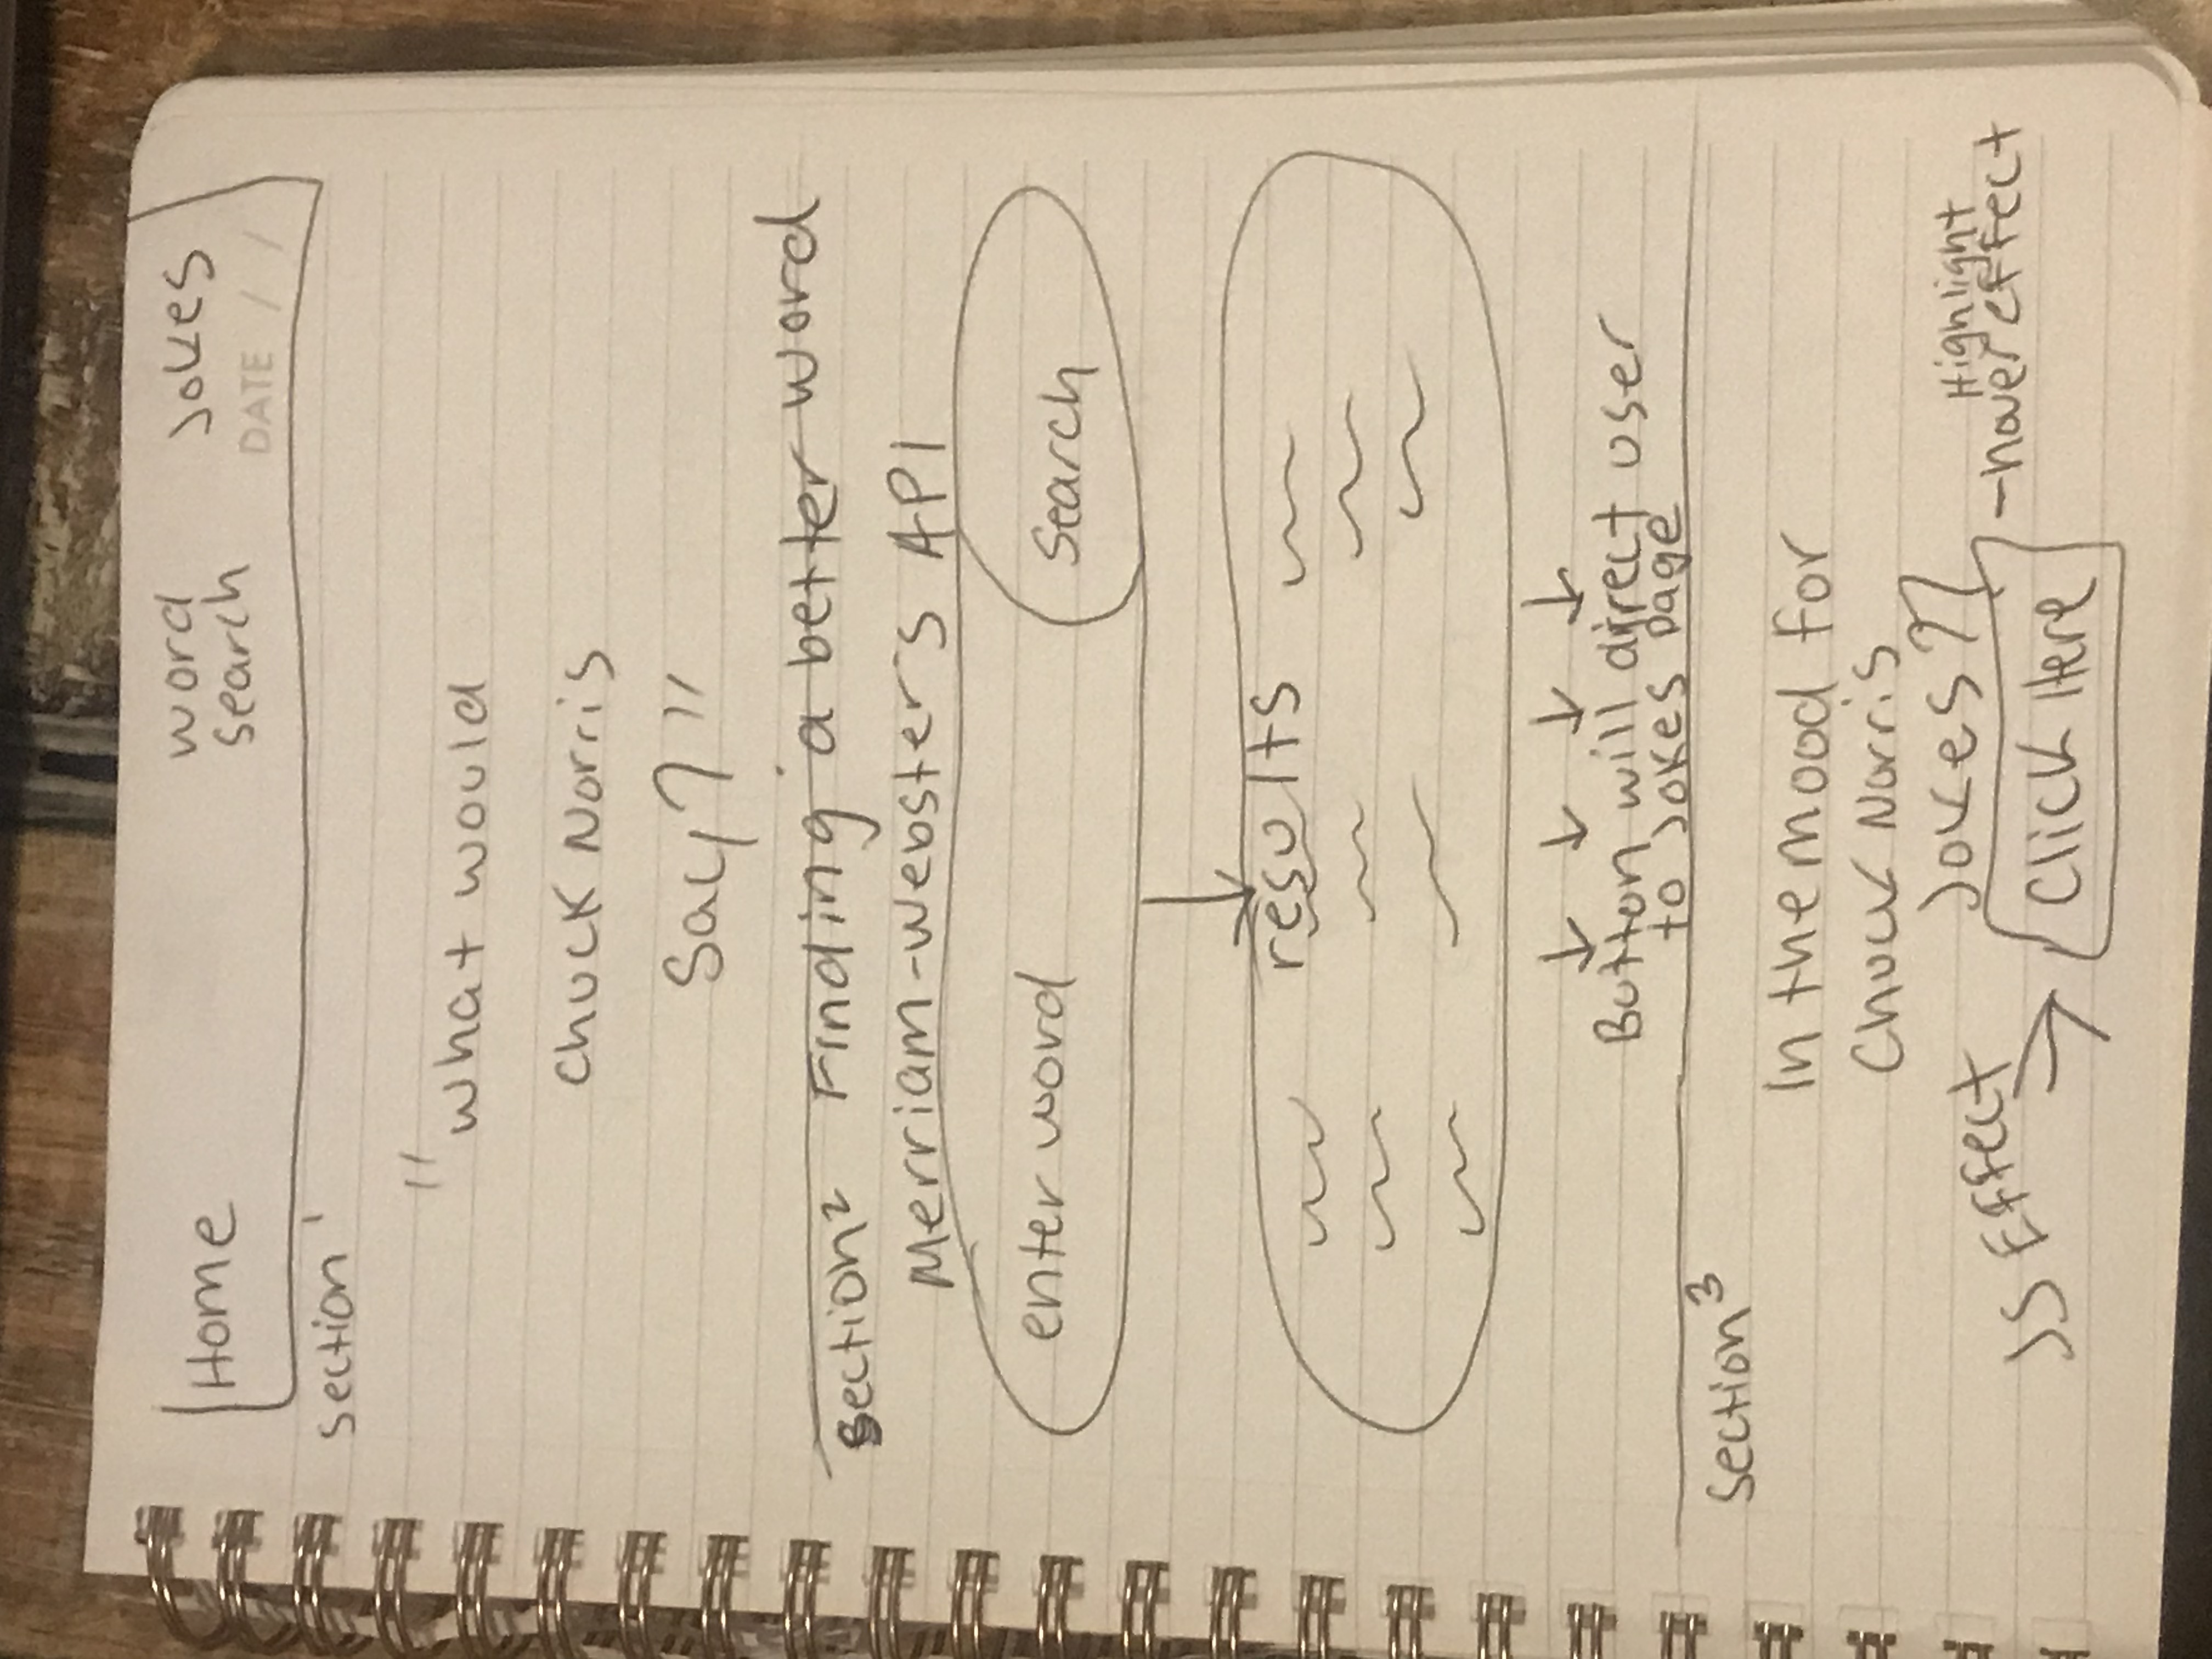 Home word search Jokes
DATE / /
section 1
"what would
Chuck Norris
Say?"
section 2 Finding a better word
Merriam-Webster's API
enter word Search
results
Button will direct user
to Jokes page
Section 3
In the mood for
Chuck Norris
Jokes??
JS Effect
Click Here
Highlight
-hover effect